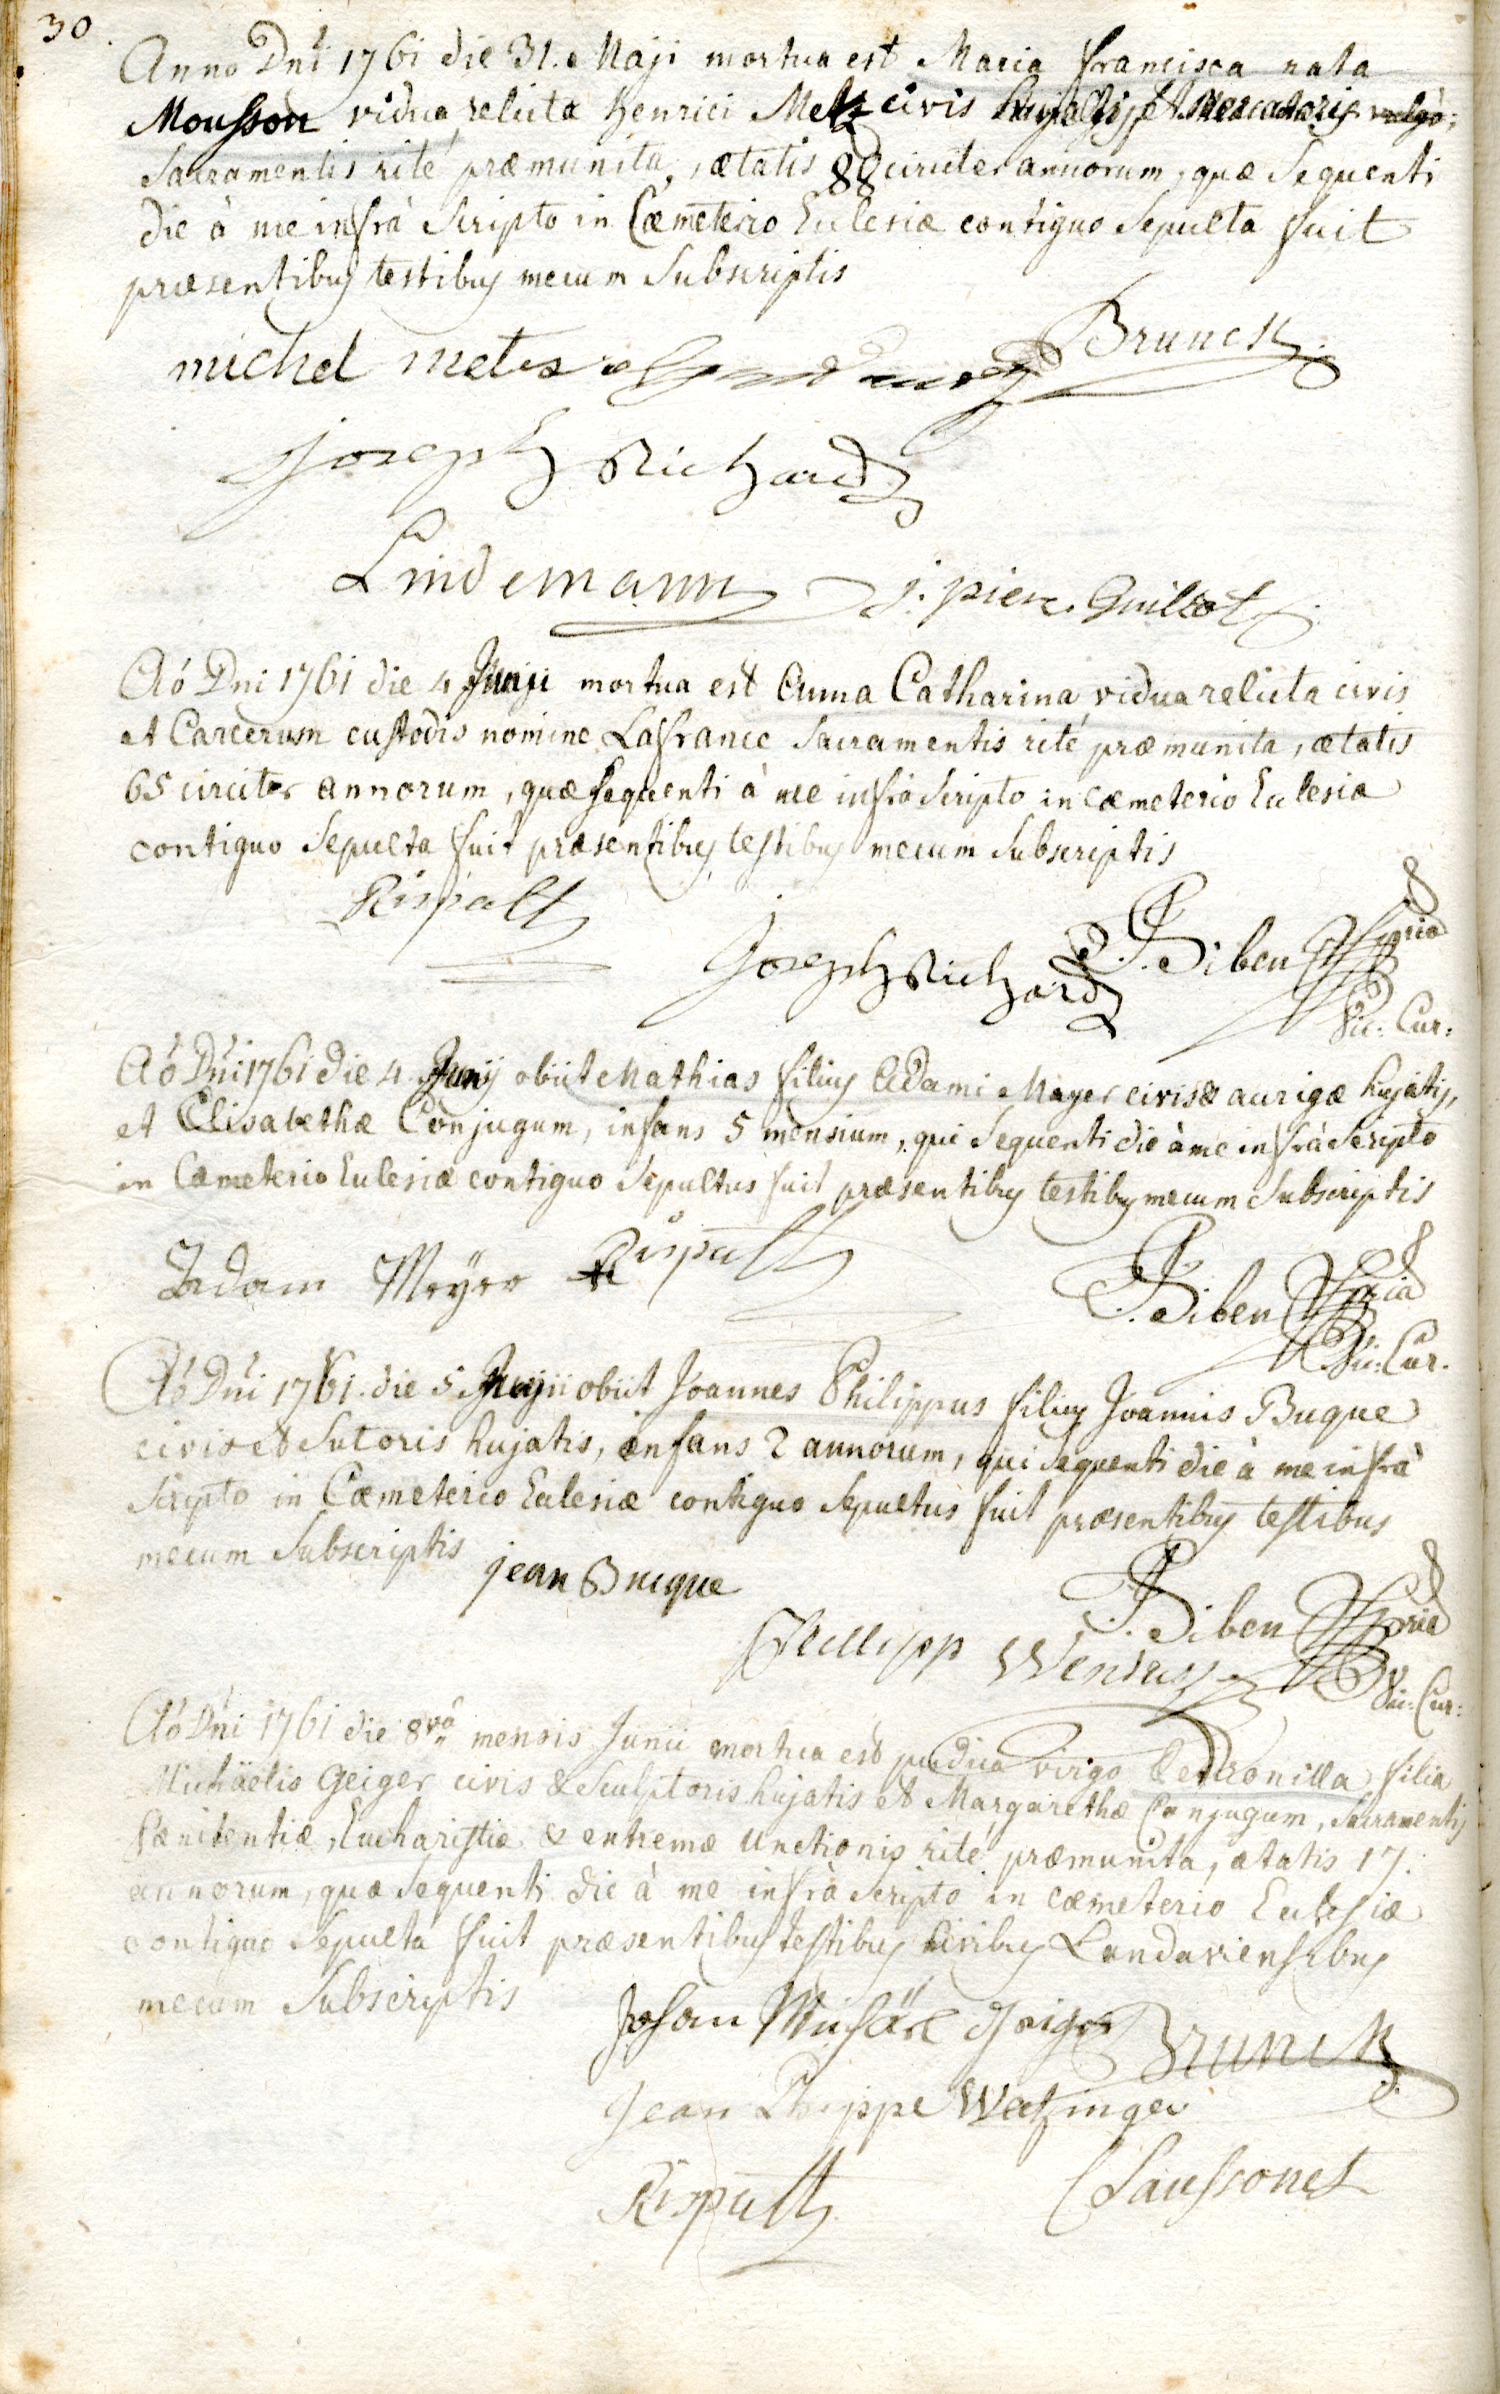 30
Anno Dni 1761 die 31. Maji mortua est Maria Francisca nata
Mousson vidua relicta Henrici Metz civis hujatis et Mercatoris
Sacramentis rité præmunita, ætatis 88 circiter annorum, quæ Sequenti
die à me infrà Scripto in Cæmeterio Eclesiæ contiguo Sepulta fuit
præsentibus testibus mecum Subscriptis
Brunck
michel Metz
Joseph Richard
Lindemann J: piere Guillot
Aó Dni 1761 die 4 Junii mortua est Anna Catharina vidua relicta civis
et Carcerum custodis nomine Lafrance Sacramentis rité præmunita, ætatis
65 circiter annorum, quæ sequenti à me infrà Scripto in cæmeterio Eclesiæ
contiguo Sepulta fuit præsentibus testibus mecum Subscriptis
Rispalt
Joseph Richard Siben
Vic: Cur:
Aó Dni 1761 die 4 Junij obiit Mathias filius Adami Mayer civis & aurigæ hujatis,
et Elisabethæ Conjugum, infans 5 mensium, qui Sequenti die à me infrà Scripto
in Cæmeterio Eclesiæ contiguo Sepultus fuit præsentibus testibus mecum Subscriptis
Adam Meyer Rispalt
Siben
Vic: Cur.
Aó Dni 1761 die 5 Junii obiit Joannes Philippus filius Joannis Buque
civis et Sutoris hujatis, infans 2 annorum, qui Sequenti die à me infrà
Scripto in Cæmeterio Eclesiæ contiguo Sepultus fuit præsentibus testibus
mecum Subscriptis
jean Buque
Siben
Phillipp
Vic: Cur:
Aó Dni 1761 die 8vâ mensis Junii mortua est pudica virgo Petronilla filia
Michäelis Geiger civis & Sculptoris hujatis et Margarethæ Conjugum, Sacramentis
Pænitentiæ, Eucharistiæ & extremæ unctionis rité præmunita, ætatis 17.
annorum, quæ Sequenti die à me infrà Scripto in cæmeterio Eclesiæ
contiguo Sepulta fuit præsentibus testibus civibus Landaviensibus
mecum Subscriptis
Johan Michäel Geiger Brunck
Jean Phippe Watzinger
Rispalt Claussonet